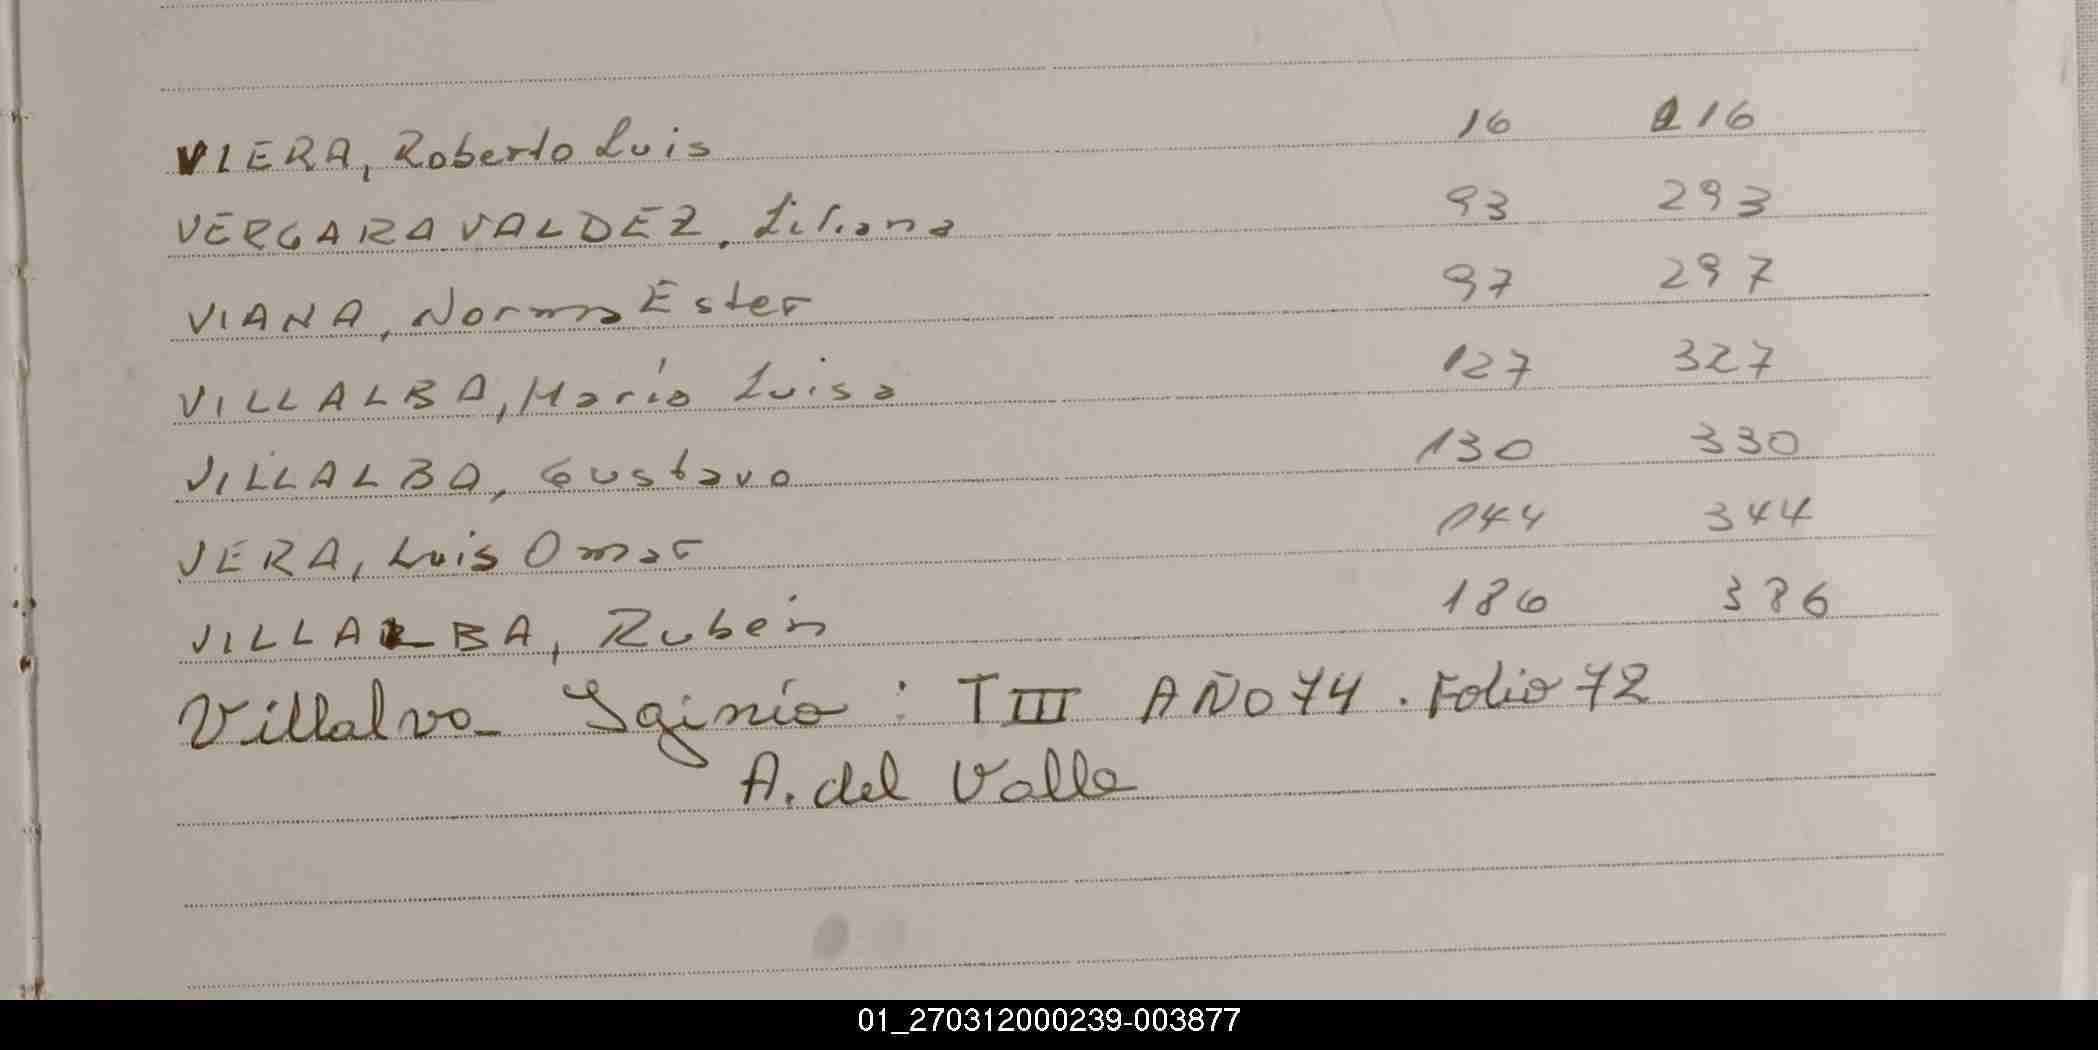 VIERA, Roberto Luis 16 216
VERGARA VALDEZ, Liliana 93 293
VIANA, Norma Ester 97 297
VILLALBA, María Luisa 127 327
VILLALBA, Gustavo 130 330
VERA, Luis Omar 144 344
VILLALBA, Rubén 186 386
Villalvo Iginio : T III AÑO 74 . Folio 72
A. del Valle
01_270312000239-003877